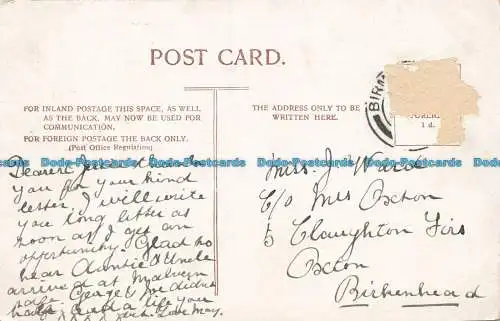 POST CARD.
FOR INLAND POSTAGE THIS SPACE, AS WELL
AS THE BACK, MAY NOW BE USED FOR
COMMUNICATION.
FOR FOREIGN POSTAGE THE BACK ONLY.
(Post Office Regulation)
THE ADDRESS ONLY TO BE
WRITTEN HERE.
BIR
1 d.
Dearest
you for your kind
letter I will write
you long letter as
soon as I get an
opportunity. Glad to
hear Auntie & Uncle
arrived at Malvern
safe. George & me didnt
half a life you
love May.
Miss. J. Ward
C/o Mrs Oxton
5 Claughton Firs
Oxton
Birkenhead
Dodo-Postcards Dodo-Postcards Dodo-Postcards Dodo-Postcards Dodo-Postcards